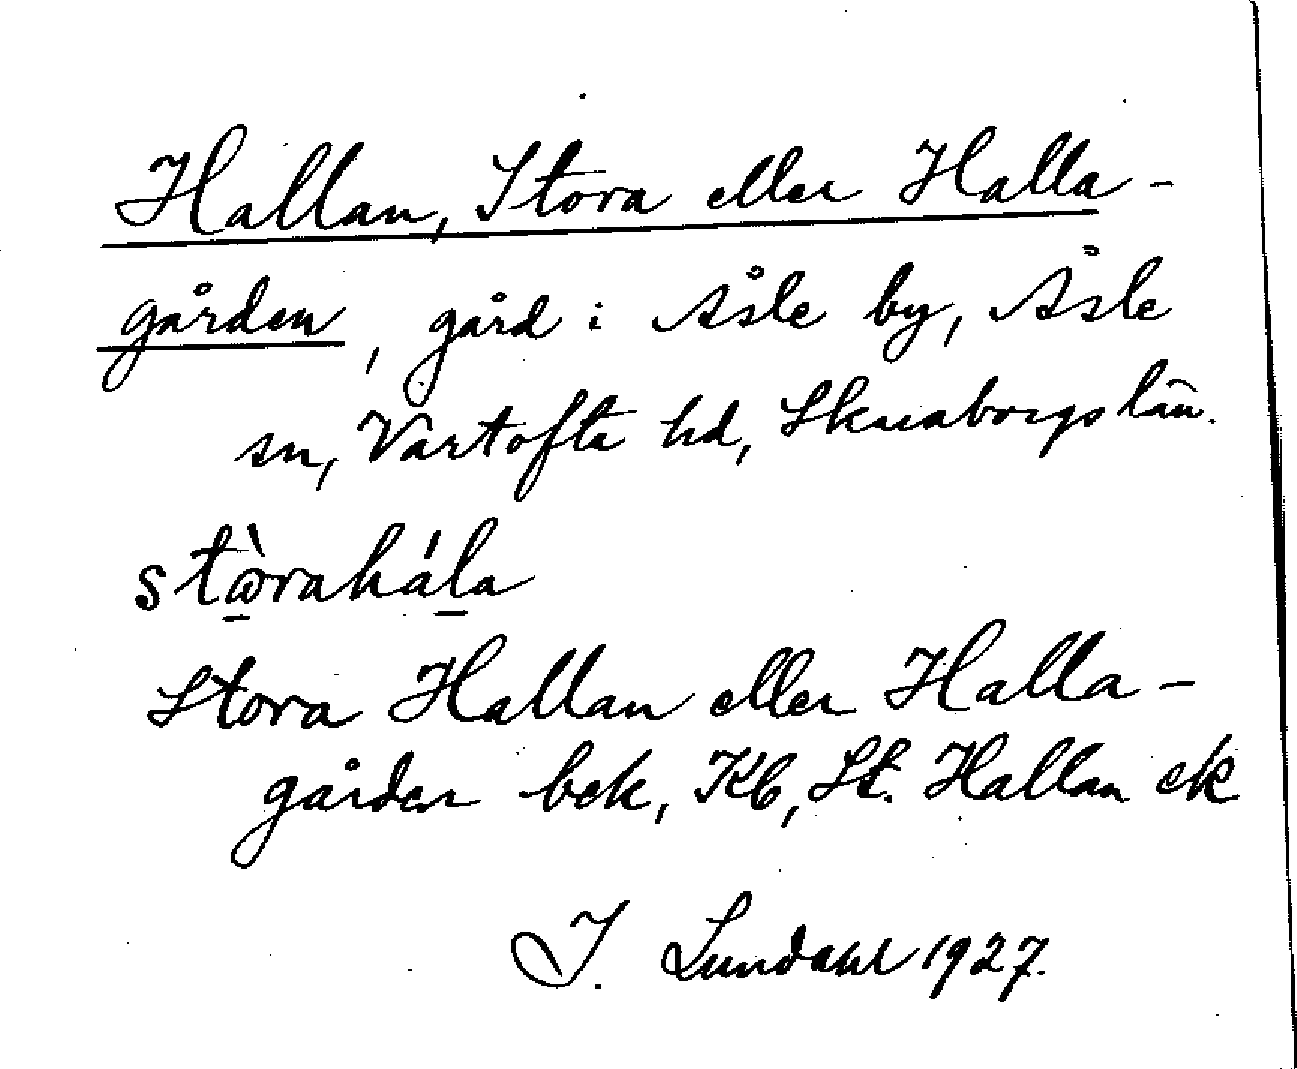 Hallan, Stora eller Halla-
gården, gård i Åsle by, Åsle
sn, Vartofta hd, Skaraborgs län.
stòrahála
Stora Hallan eller Halla-
gården bek, Kb, St. Hallan ek
I. Lundahl 1927.